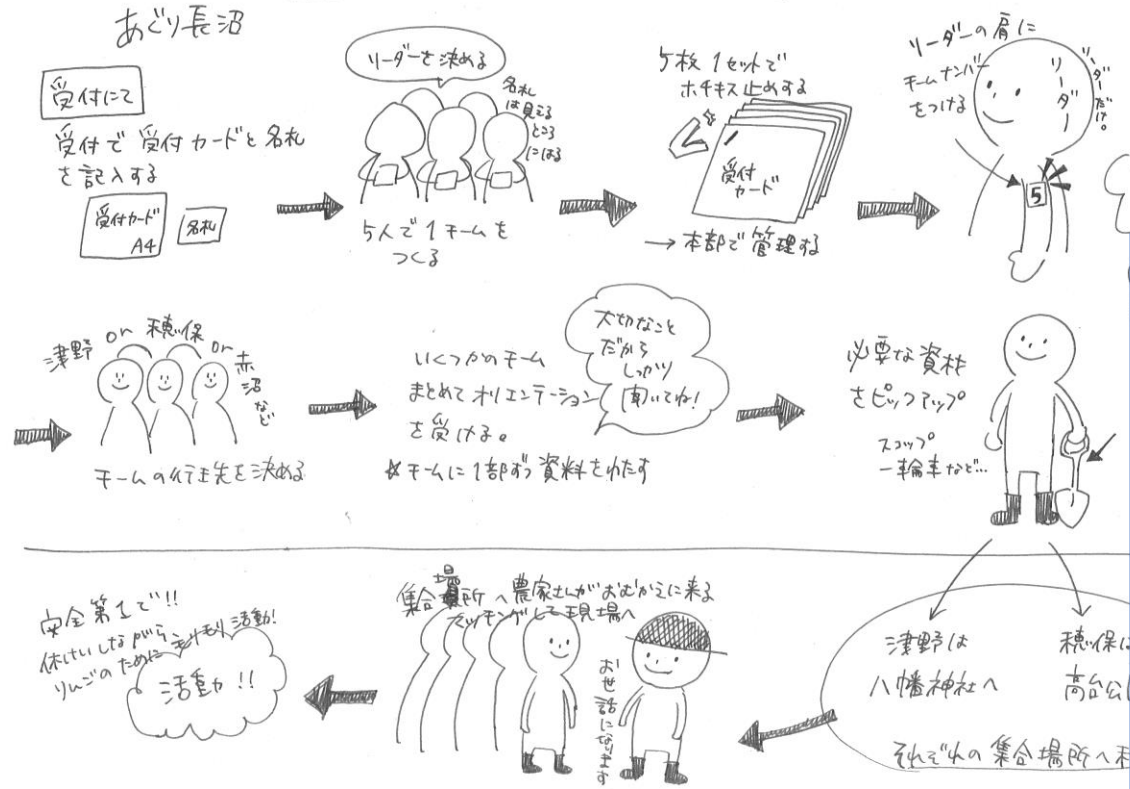 あぐり長沼
受付にて
受付で受付カードと名札
を記入する
受付カード
A4
名札
リーダーを決める
名札
は見える
ところ
にはる
5人で1チームを
つくる
5枚1セットで
ホチキス止めする
受付
カード
→本部で管理する
リーダーの肩に
チームナンバー
をつける
リーダー
リーダーだけ。
5
津野 or 穂保 or 赤沼など
チームの行き先を決める
いくつかのチーム
まとめてオリエンテーション
を受ける。
☆チームに1部ずつ資料をわたす
大切なこと
だから
しっかり
聞いてね!
必要な資材
をピックアップ
スコップ
一輪車など…
津野は
八幡神社へ
穂保は
高台公
それぞれの集合場所へ
集合場所へ農家さんがおむかえに来る
マッチングして現場へ
お世話になります
安全第1で!!
休けいしながら
りんごのためにモリモリ活動!
活動!!